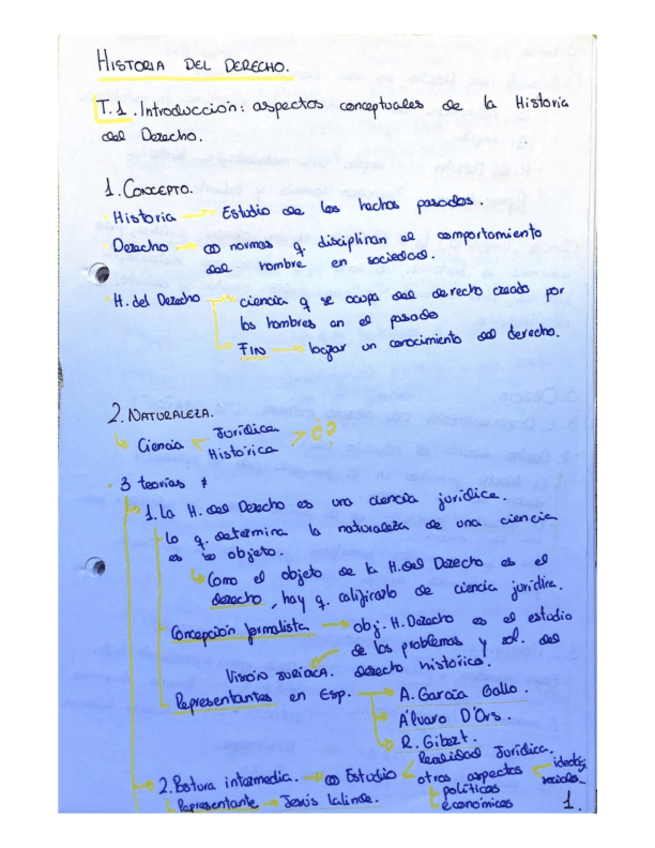 HISTORIA DEL DERECHO.
T.1. Introducción: aspectos conceptuales de la Historia
del Derecho.
1. CONCEPTO.
Historia Estudio de los hechos pasados.
Derecho normas q. disciplinan el comportamiento
del hombre en sociedad.
H. del Derecho ciencia q se ocupa del derecho creado por
los hombres en el pasado
FIN lograr un conocimiento del derecho.
2. NATURALEZA.
Ciencia Jurídica
Histórica ¿?
3 teorías ≠
1. La H. del Derecho es una ciencia jurídica.
Lo q. determina la naturaleza de una ciencia
es su objeto.
Como el objeto de la H. del Derecho es el
derecho, hay q. calificarlo de ciencia jurídica.
Concepción formalista obj. H. Derecho es el estudio
de los problemas y sol. del
VISIÓN JURÍDICA. derecho histórico.
Representantes en Esp. A. García Gallo.
Álvaro D'Ors.
R. Gibert.
2. Postura intermedia. Estudio Realidad Jurídica.
otros aspectos ideológ.
sociales.
Representante Jesús Lalinde. políticas
económicos 1.